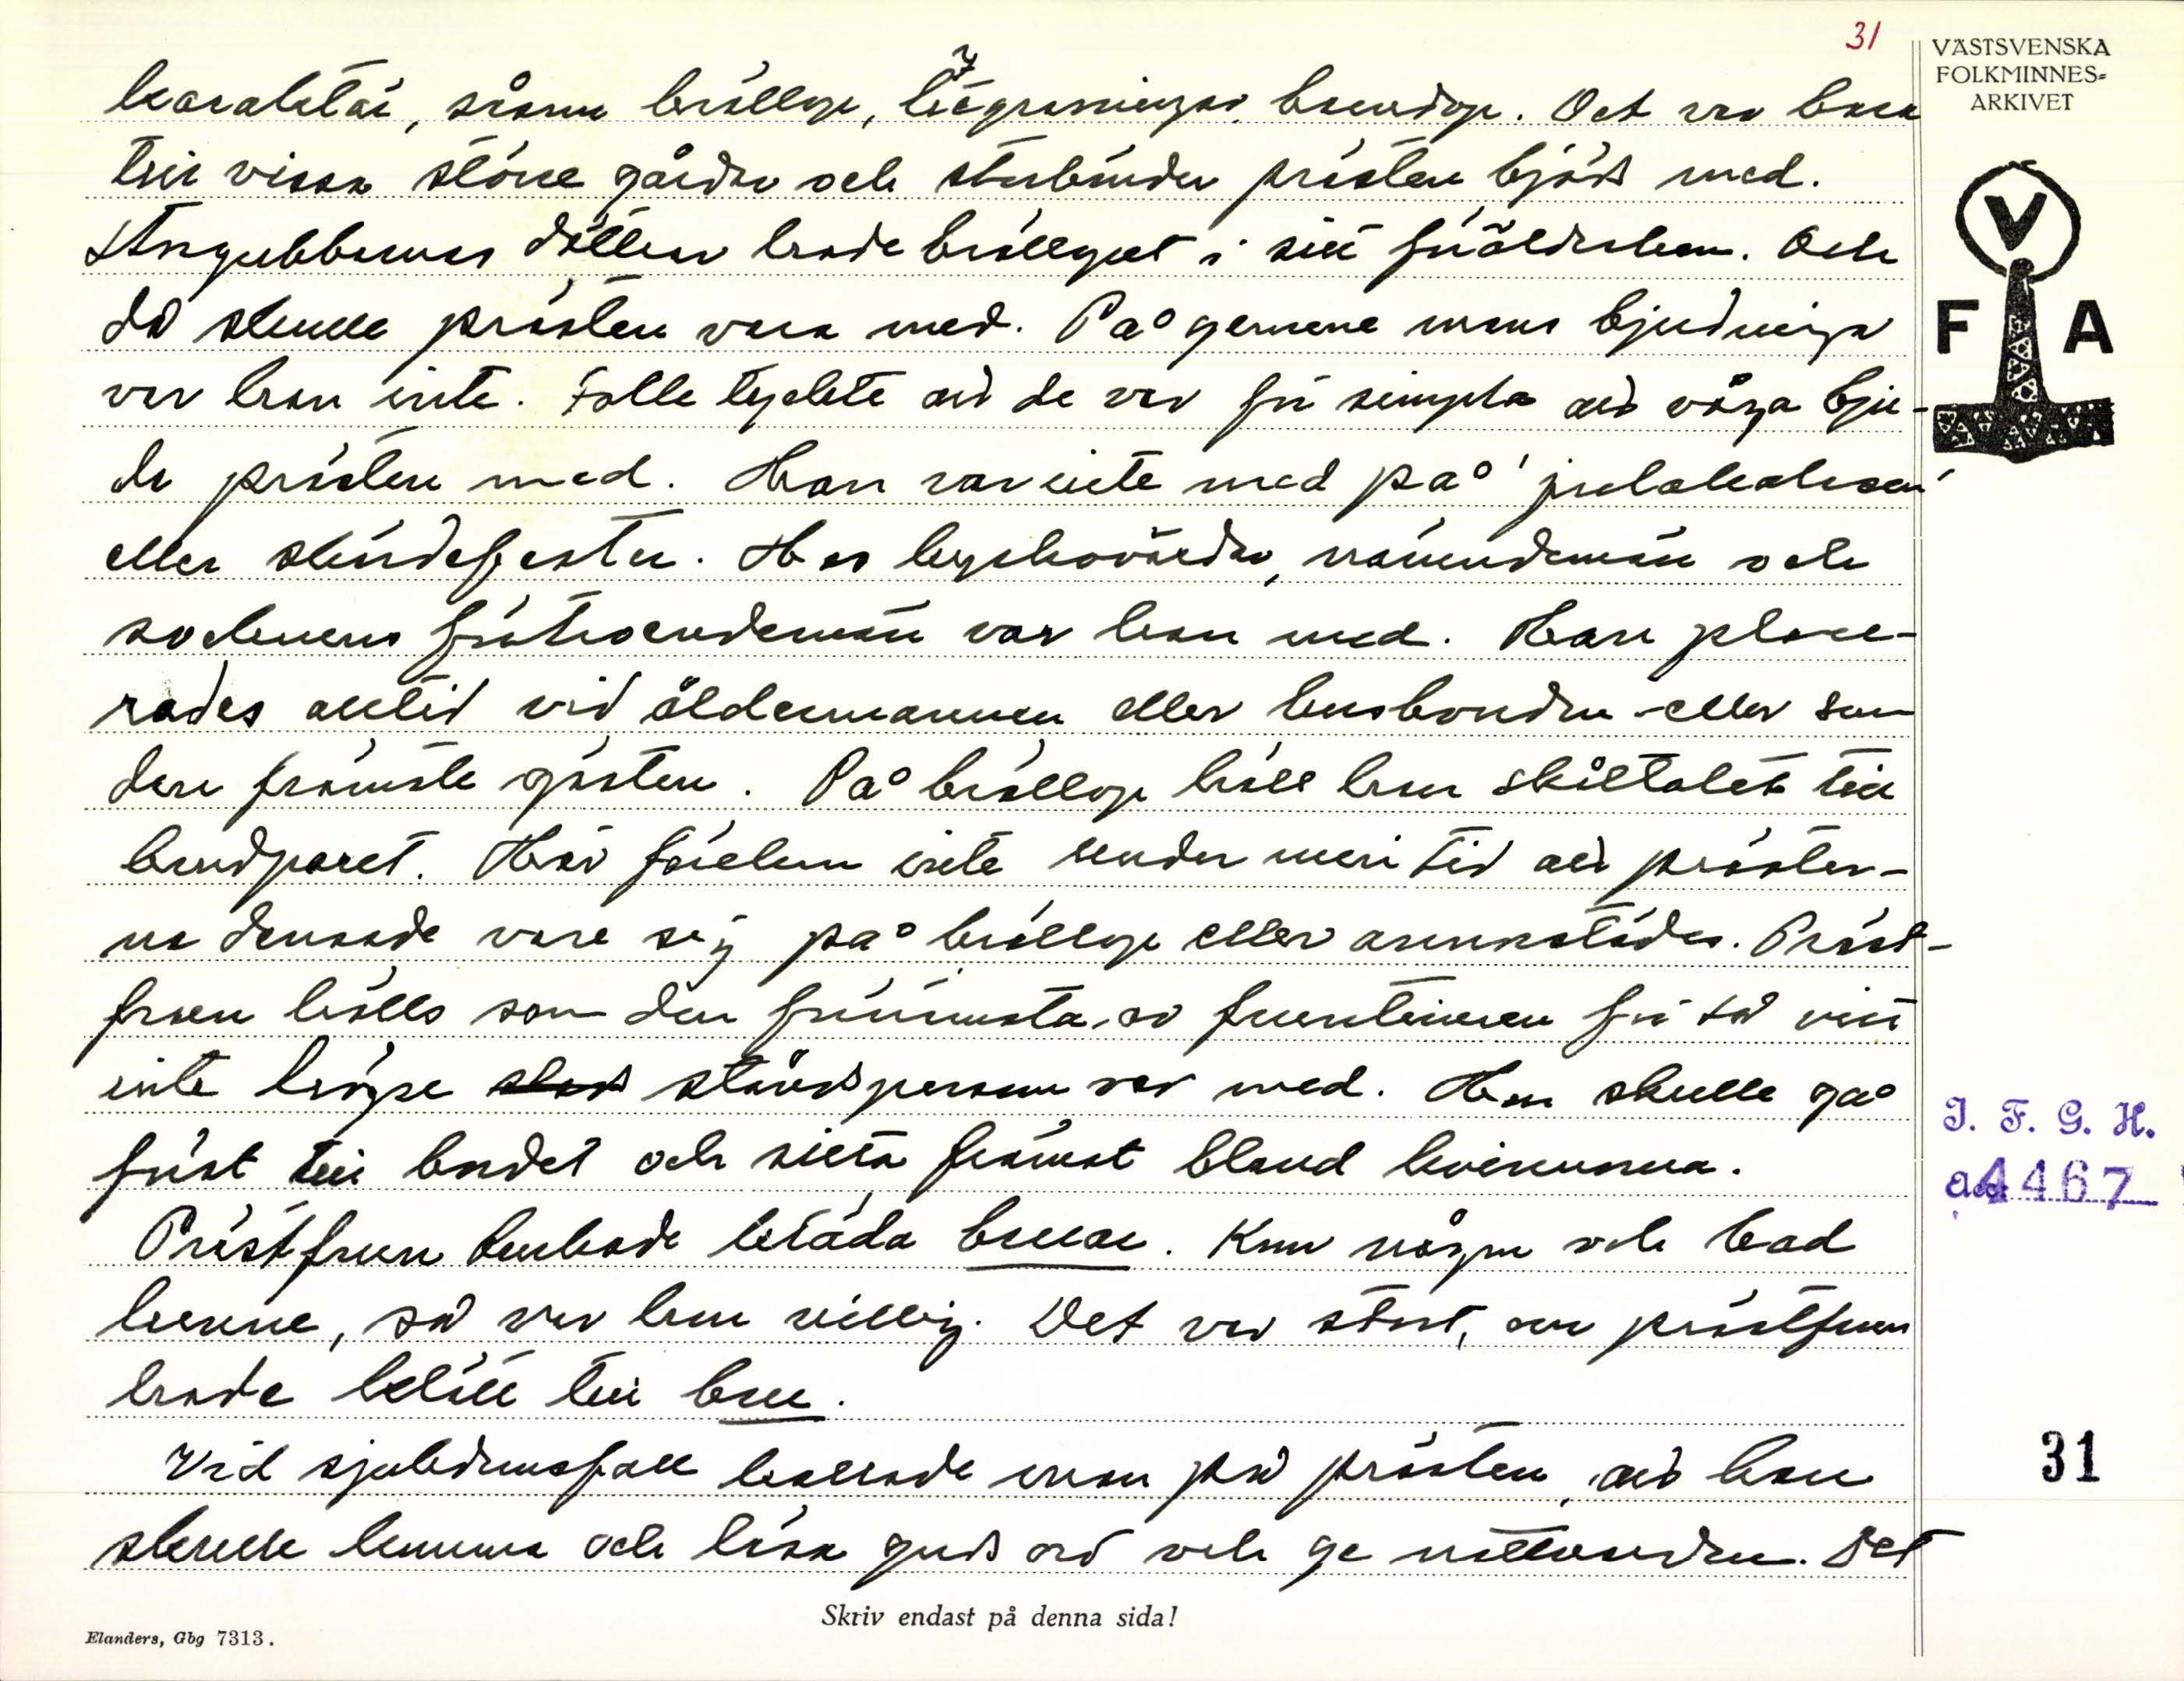 31
VÄSTSVENSKA
FOLKMINNES-
ARKIVET
V
F A
karaktär, såsom bröllop, begravningar, barndop. Det var bara
till vissa större gårdar och storbönder prästen bjöds med.
Storgubbarnas döttrar hade bröllopet i sitt föräldrahem. Och
då skulle prästen vara med. På gemene mans bjudningar
var han inte. Folk tyckte att de var för simpla att våga bju-
da prästen med. Han var inte med på 'julakalasen'
eller släktfester. Hos kyrkovärdar, nämndemän och
socknens förtroendemän var han med. Han place-
rades alltid vid åldermannen eller husbonden eller som
den främste gästen. På bröllop höll han skåltalet till
brudparet. Hör förekom inte under min tid att präster-
na dansade vare sig på bröllop eller annorstädes. Präst-
fruen hölls som den förnämsta av fruntimren för så vitt
inte högre stånd ståndsperson var med. Hon skulle gå
först till bordet och sitta främst bland kvinnorna.
Prästfrun brukade kläda brurar. Kom någon och bad
henne, så var hon villig. Det var stort, om prästfrun
hade klätt till brur.
Vid sjukdomsfall kallade man på prästen, att han
skulle komma och läsa guds ord och ge nattvarden. Det
I. F. G. H.
4467
31
Skriv endast på denna sida!
Elanders, Gbg 7313.